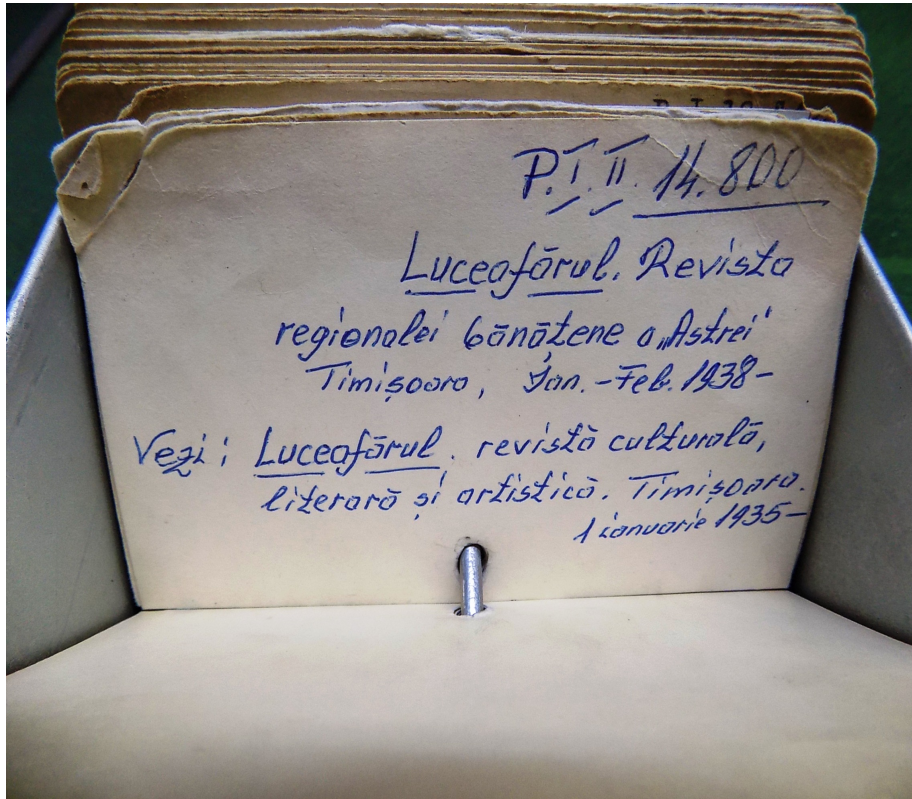 P. I. II. 14.800
Luceafărul. Revista
regionalei bănățene a „Astrei"
Timișoara, Ian. - Feb. 1938 -
Vezi: Luceafărul. revistă culturală,
literară și artistică. Timișoara.
1 ianuarie 1935 -